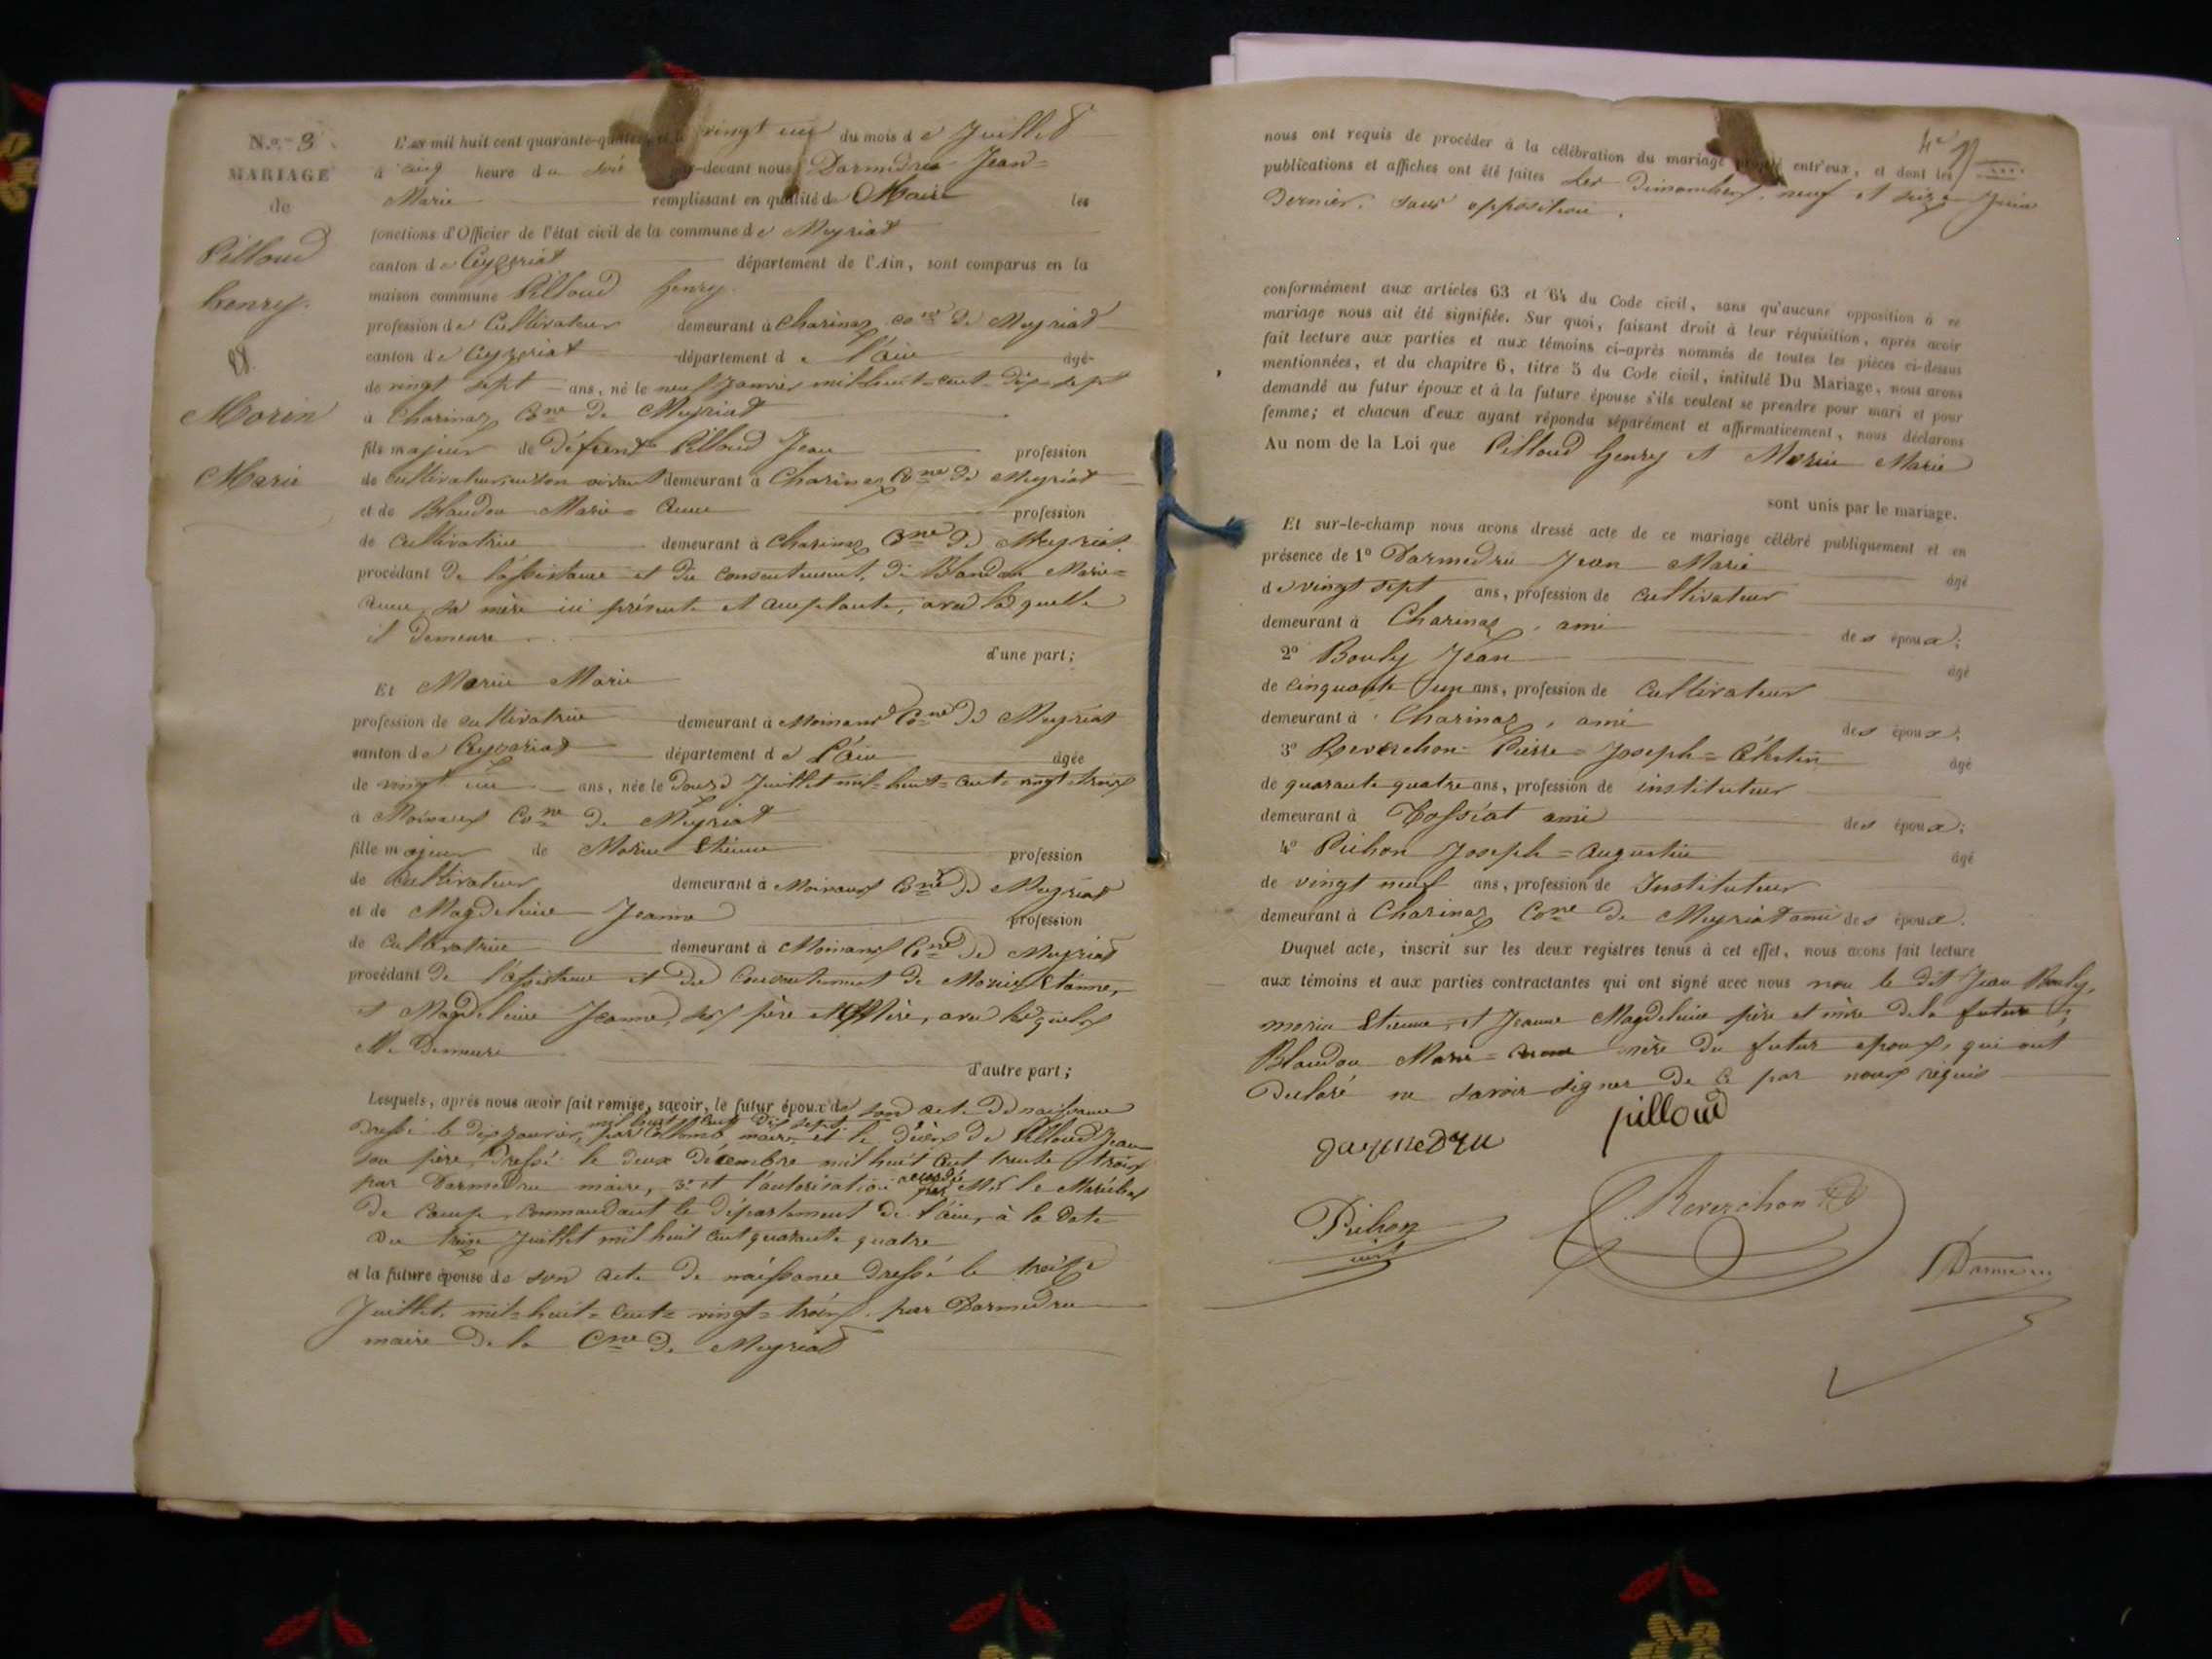 N.º 8
MARIAGE
de
Pilloud
henry.
Et
Morin
Marie
L'an mil huit cent quarante-quatre vingt un du mois de Juillet
à cinq heure du soir par-devant nous Darmedru Jean=
Marie remplissant en qualité de Maire les
fonctions d'Officier de l'état civil de la commune de Meyriat
canton de Ceyzeriat département de l'Ain, sont comparus en la
maison commune Pilloud henry.
profession de Cultivateur demeurant à Charinaz co.ne de Meyriat
canton de Ceyzeriat département de l'ain âgé
de vingt sept ans, né le neuf Janvier mil huit=cent=dix=sept
à Charinaz Co.ne de Meyriat
fils majeur de défunt Pilloud Jean profession
de cultivateur, en son vivant demeurant à Charinaz Co.ne de Meyriat
et de Blandon Marie=Anne profession
de Cultivatrice demeurant à Charinaz Co.ne de Meyriat.
procédant de l'assistance et du consentement, de Blandon Marie=
Anne, sa mère ici présente et acceptante, avec laquelle
il demeure
d'une part;
Et Morin Marie
profession de cultivatrice demeurant à Moinans Co.ne de Meyriat
canton de Ceyzeriat département de L'ain âgée
de vingt un ans, née le douze Juillet mil=huit=cent=vingt trois
à Moinans Co.ne de Meyriat
fille majeur de Morin Etienne profession
de Cultivateur demeurant à Moinans Co.ne de Meyriat
et de Magdeleine Jeanne profession
de Cultivatrice demeurant à Moinans Co.ne de Meyriat
procédant de l'assistance et du Consentement de Morin Etienne,
et Magdeleine Jeanne, ses père et Mère, avec lesquels
elle Demeure
d'autre part;
Lesquels, après nous avoir fait remise, savoir, le futur époux de son acte de naissance
dressé le dix Janvier, mil huit cent dix sept par maire, et le décès de Pilloud Jean
son père, dressé le deux décembre mil huit cent trente trois
par Darmedru maire, 3º et l'autorisation accordée par Mr le Maréchal
de camp, commandant le département de l'ain, à la date
du treize Juillet mil huit cent quarante quatre
et la future épouse de son acte de naissance dressé le treize
Juillet, mil=huit=cent=vingt=trois, par Darmedru
maire de la Cne de Meyriat
nous ont requis de procéder à la célébration du mariage projeté entr'eux, et dont les
publications et affiches ont été faites les Dimanches, neuf et seize Juin
dernier, sans opposition.
conformément aux articles 63 et 64 du Code civil, sans qu'aucune opposition à ce
mariage nous ait été signifiée. Sur quoi, faisant droit à leur réquisition, après avoir
fait lecture aux parties et aux témoins ci-après nommés de toutes les pièces ci-dessus
mentionnées, et du chapitre 6, titre 5 du Code civil, intitulé Du Mariage, nous avons
demandé au futur époux et à la future épouse s'ils veulent se prendre pour mari et pour
femme; et chacun d'eux ayant répondu séparément et affirmativement, nous déclarons
Au nom de la Loi que Pilloud henry et Morin Marie
sont unis par le mariage.
Et sur-le-champ nous avons dressé acte de ce mariage célébré publiquement et en
présence de 1º Darmedru Jean Marie âgé
de vingt sept ans, profession de cultivateur
demeurant à Charinaz, ami des époux;
2º Bouly Jean âgé
de cinquante un ans, profession de cultivateur
demeurant à Charinaz, ami des époux;
3º Reverchon Pierre=Joseph=Célestin âgé
de quarante quatre ans, profession de instituteur
demeurant à Tossiat ami des époux;
4º Pichon Joseph=Augustin âgé
de vingt neuf ans, profession de Instituteur
demeurant à Charinaz Co.ne de Meyriat ami des époux.
Duquel acte, inscrit sur les deux registres tenus à cet effet, nous avons fait lecture
aux témoins et aux parties contractantes qui ont signé avec nous non le dit Jean Bouly,
morin Etienne, et Jeanne Magdeleine père et mère de la future;
Blandon Marie=Anne mère du futur époux, qui ont
déclaré ne savoir signer de ce par nous requis
darmedru
pilloud
Pichon
Reverchon
Darmedru